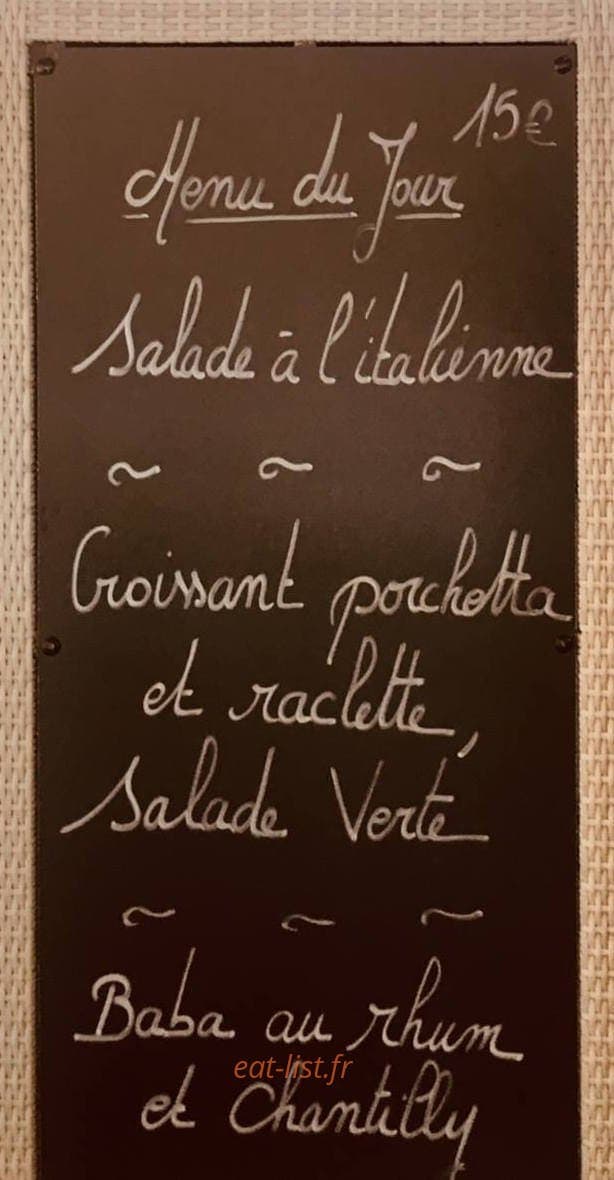 15€
Menu du Jour
Salade à l'italienne
~ ~ ~
Croissant porchetta
et raclette,
Salade Verte
~ ~ ~
Baba au rhum
eat-list.fr
et Chantilly